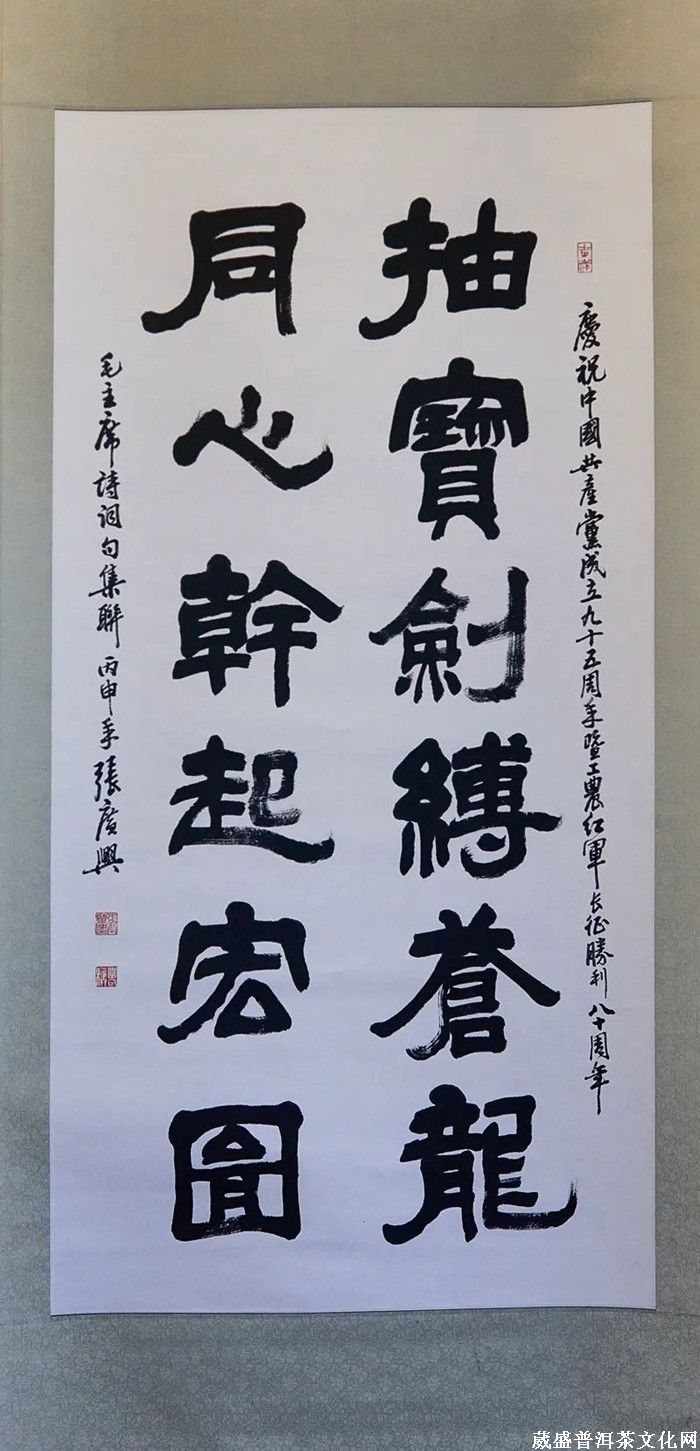 慶祝中國共產黨成立九十五周年暨工農紅軍長征勝利八十周年
抽寶劍縛蒼龍
同心幹起宏圖
毛主席詩詞句集聯 丙申年 張廣興
葳盛普洱茶文化网